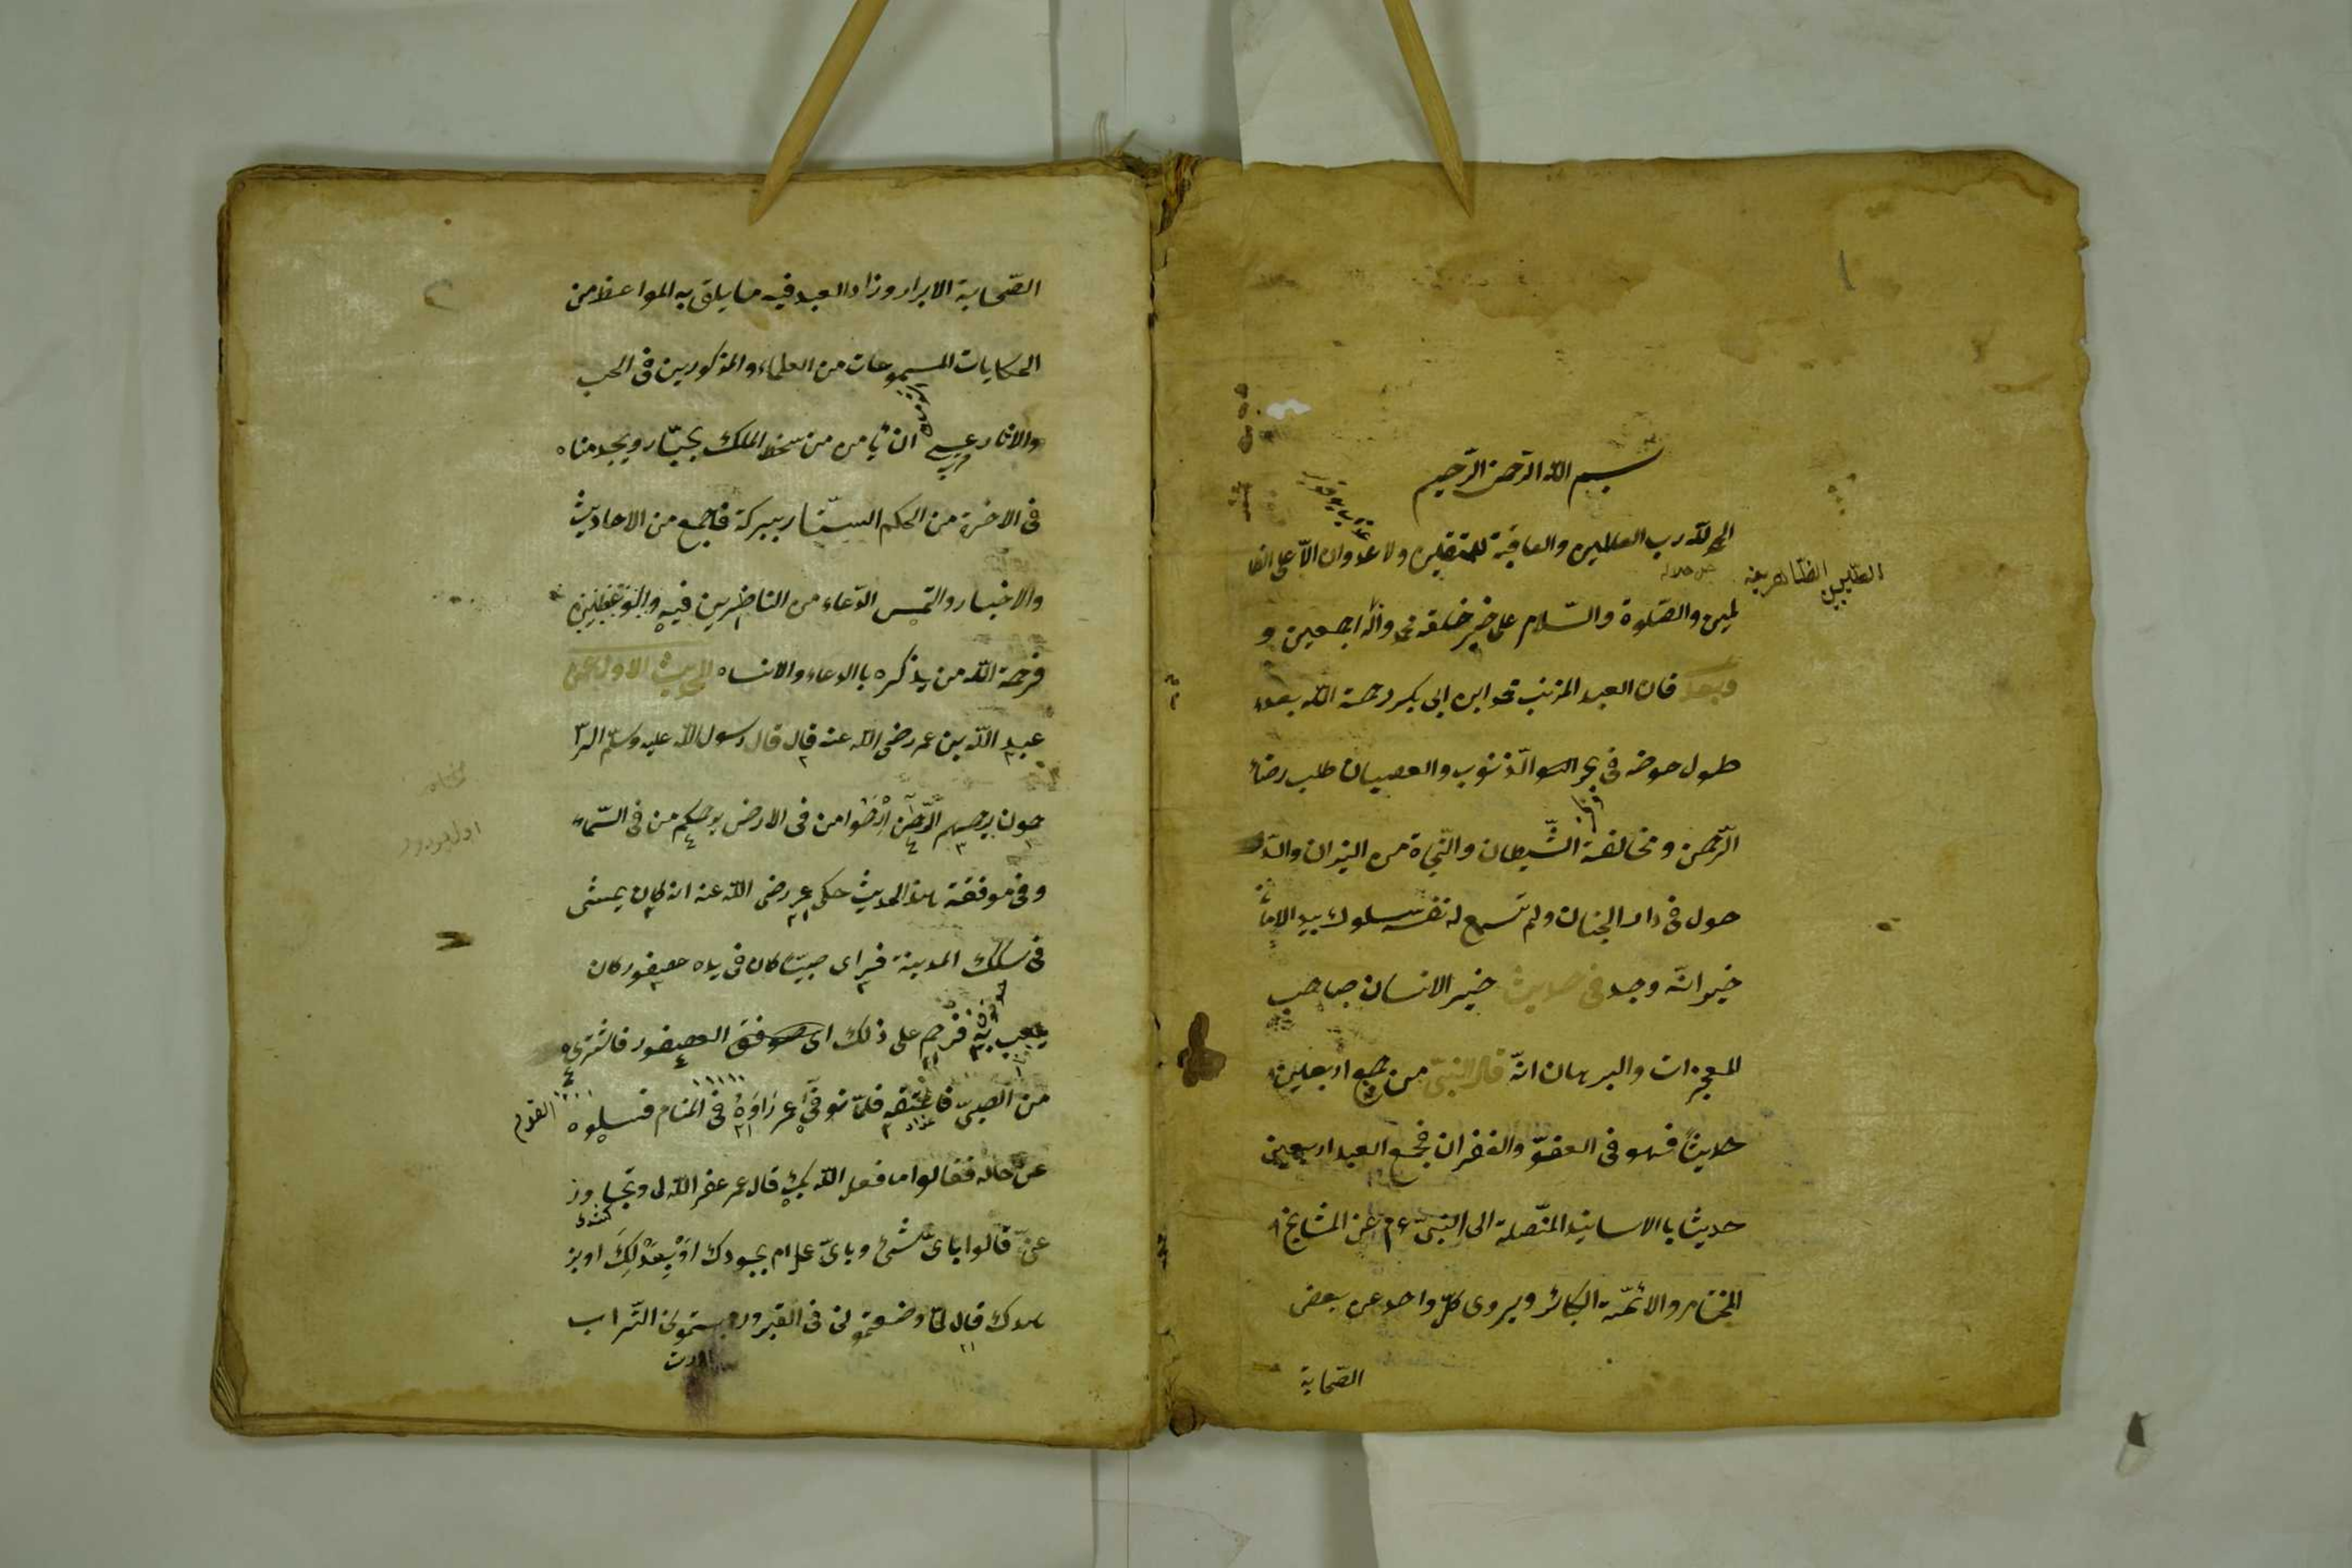 بسم الله الرحمن الرحيم
الحمد لله رب العالمين والعاقبة للمتقين ولا عدوان الا على الظا
لمين والصلوة والسلام على خير خلقه محمد وآله اجمعين و
وبعد فان العبد المذنب محمد ابن ابى بكر رحمة الله بعد
طول خوضه فى بحر الذنوب والعصيان طلب رضاء
الرحمن ومخالفة الشيطان والنجاة من النيران والد
خول فى دار الجنان ولم تسمع له نفسه سلوك
خير انه وجد فى حديث خير الانسان صاحب
المعجزات والبرهان انه قال النبى من جمع اربعين
حديثا فهو فى العفو والغفران فجمع العبد اربعين
حديثا بالاسانيد المتصلة الى النبى عم عن المشايخ
والائمة الكبائر ويروى كل واحد عن بعض
الصحابة
الصحابة الابرار وزاد العبد فيه ما يلق به المواعظ من
الحكايات المسموعات من العلماء والمذكورين فى الحب
والاثار ان يأمن من سخط الملك الجبار ويجد مناه
فى الاخرة من الحكم الستار ببركة فاجمع من الاحاديث
والاخبار والتمس الدعاء من الناظرين فيه
فرحمة الله من يذكره بالدعاء والانساه الحديث الاول عن
عبد الله بن عمر رضى الله عنه قال قال رسول الله عليه وسلم الرا
حمون يرحمهم الرحمن ارحموا من فى الارض يرحمكم من فى السماء
وفى موفقة هذا الحديث حكى عمر رضى الله عنه انه كان يمشى
فى سكك المدينة فيراى صبيا كان فى يده عصفور كان
يلعب به فرحم على ذلك العصفور فاشترى
من الصبى فاعتقه فلما توفى عمر راوه فى المنام فسلوه
عن حاله فقالوا ما فعل الله بك قال عمر غفر الله لى وتجاوز
عنى قالوا باى شئ وباى عمل ام بجودك او بعدلك او بز
هدك قال لما وضعتمونى فى القبر وسترتمونى التراب